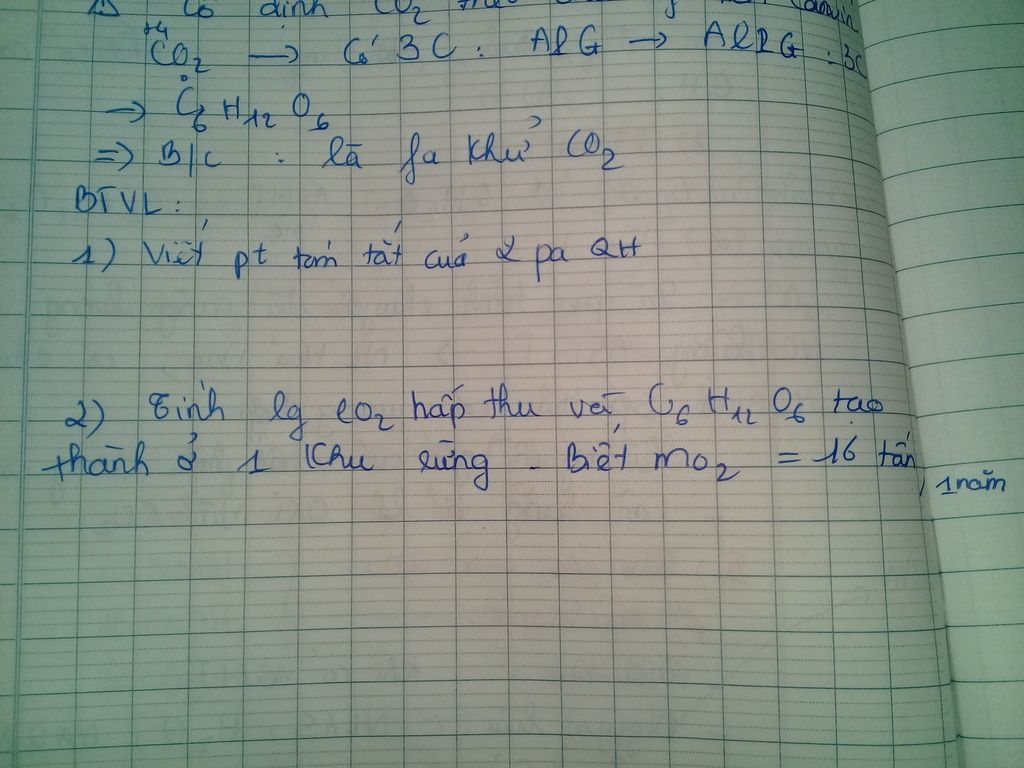 Cố định CO2
+4
CO2 → Có 3C : AlG → AlPG : 3C
→ C6 H12 O6
=> B/C : là fa khử CO2
BTVL :
1) Viết pt tóm tắt của 2 pa QH
2) Tính lg CO2 hấp thu và C6 H12 O6 tạo
thành ở 1 khu rừng - Biết mO2 = 16 tấn
/ 1 năm